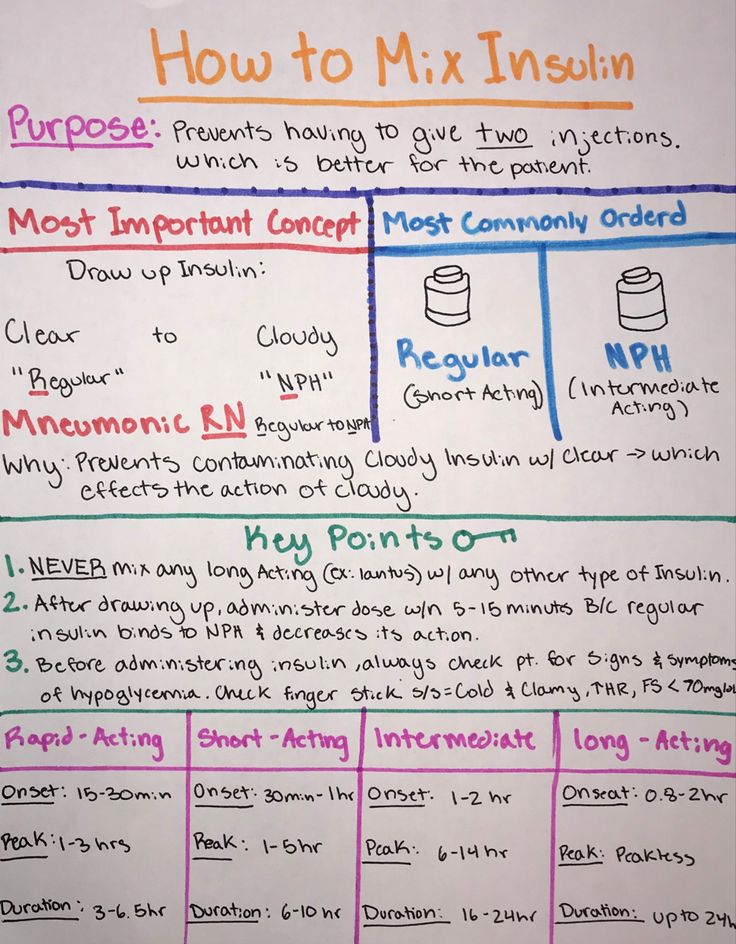 How to Mix Insulin
Purpose: Prevents having to give two injections.
which is better for the patient.
Most Important Concept
Draw up Insulin:
Clear to Cloudy
"Regular" "NPH"
Mneumonic RN Regular to NPH
Most Commonly Orderd
Regular
(Short Acting)
NPH
(Intermediate
Acting)
Why: Prevents contaminating Cloudy Insulin w/ clear → which
effects the action of cloudy.
Key Points
1. NEVER mix any long Acting (ex: lantus) w/ any other type of Insulin.
2. After drawing up, administer dose w/n 5-15 minuts B/C regular
insulin binds to NPH & decreases its action.
3. Before administering insulin, always check pt. for signs & symptoms
of hypoglycemia. Check finger stick s/s = Cold & Clamy, ↑HR, FS < 70mg/dL
Rapid-Acting
Onset: 15-30min
Peak: 1-3 hrs
Duration: 3-6.5hr
Short-Acting
Onset: 30min-1hr
Peak: 1-5hr
Duration: 6-10 hr
Intermediate
Onset: 1-2 hr
Peak: 6-14 hr
Duration: 16-24hr
long-Acting
Onseat: 0.8-2hr
Peak: Peakless
Duration: up to 24h